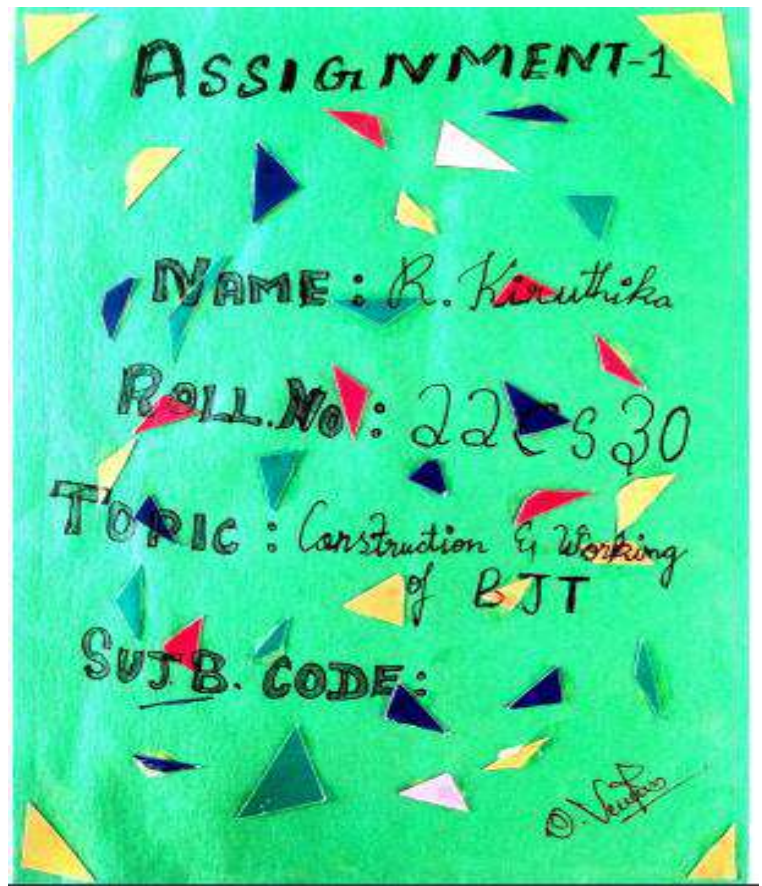 ASSIGNMENT-1
NAME : R. Kiruthika
ROLL.No : 22CS30
TOPIC : Construction & Working
of BJT
SUJB. CODE: